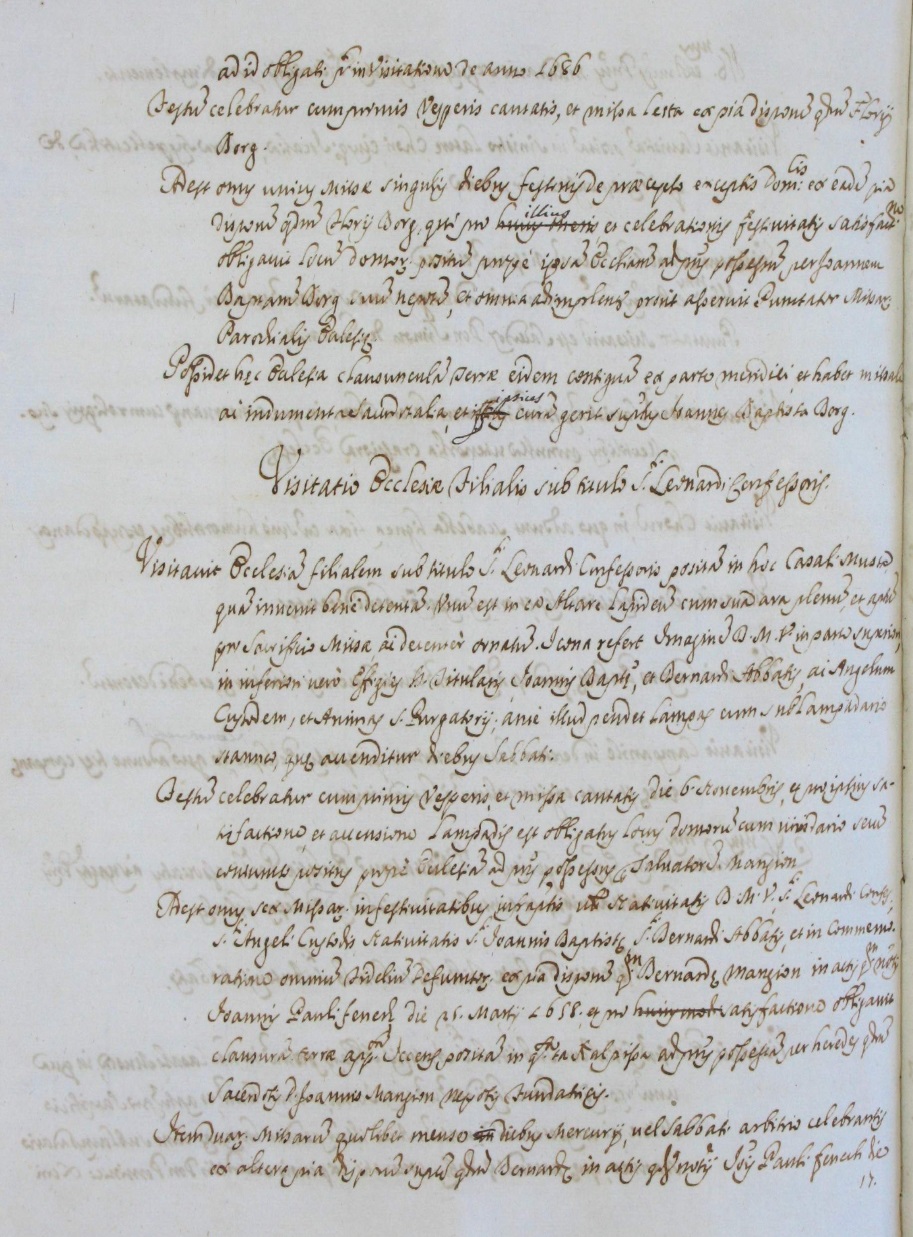 ad id obligati fr in Visitatione de anno 1686
Festū celebratur cum primis Vesperis cantatis, et missa lecta ex pia dispone qdm Florij
Borg.
Adest onus unius Missæ singulis diebus festivis de præcepto exceptis Domlis: ex eadē pia
dispone qdm Florij Borg, qui pro illius et celebrationis festivitatis satisfactne
obligavit locū domorz positū prope ipsā Ecclesiam ad prns possessū per Joannem
Bapnam Borg eius nepotē, et omnia adimplentr prout asseruit Punctator Missarz
Parochialis Ecclesię
Possidet hęc Ecclesia clausunculā terræ eidem contiguā ex parte meridiei, et habet missale
ac indumenta sacerdotalia, et ipsies curā gerit supdtus Joannes Baptista Borg.
Visitatio Ecclesiæ Filialis sub titulo Sti Leonardi Confessoris.
Visitavit Ecclesiā filialem sub titulo Sti Leonardi Confessoris positā in hoc Casali Mustā
quā invenit bene detentā. Unū est in ea Altare lapideū cum sua ara plenū, et aptū
pro Sacrificio Missæ ac decenter ornatū. Icona refert Imaginē B. M. Vs in parte superiori,
in inferiori vero Effigies S. Titularis, Joannis Baptę, et Bernardi Abbatis, ac Angelum
Custodem, et Animas S. Purgatorij; ante illud pendet Lampas cum sub Lampadario
stanneo, quę accenditur diebus Sabbati.
Festū celebratur cum primis Vesperis, et missa cantatis die 6 Novembris, et pro ipsius sa-
tisfactione, et accensione Lampadis est obligatus locus domorū cum viridario seu
contiguo positus prope Ecclesiā ad prns possessus Salvatorē Mangion
Adest onus sex Missarz in festivitatibus infraptis ut Nativitatis B. M. V., Sti Leonardi Confris,
S. Angeli Custodis Nativitatis Sti Joannis Baptistę, Sti Bernardi Abbatis, et in Commemo-
ratione omniū Fideliū Defunctorz ex pia dispone qdm Bernardę Mangion in actis qdm notrij
Joannis Pauli fenech die 25 Martij 1658. et pro satisfactione obligavit
clausurā terræ appta positā in qrta tal pissa ad prns possessā per heredes qdm
Sacerdotis D. Joannis Mangion nepotis Fundatricis.
Item duarz Missarū quolibet mense diebus Mercurij, vel Sabbati arbitrio celebrantis
ex altera pia dispone supradę qdm Bernardę in actis qdm notrij Jois Pauli fenech die
17.